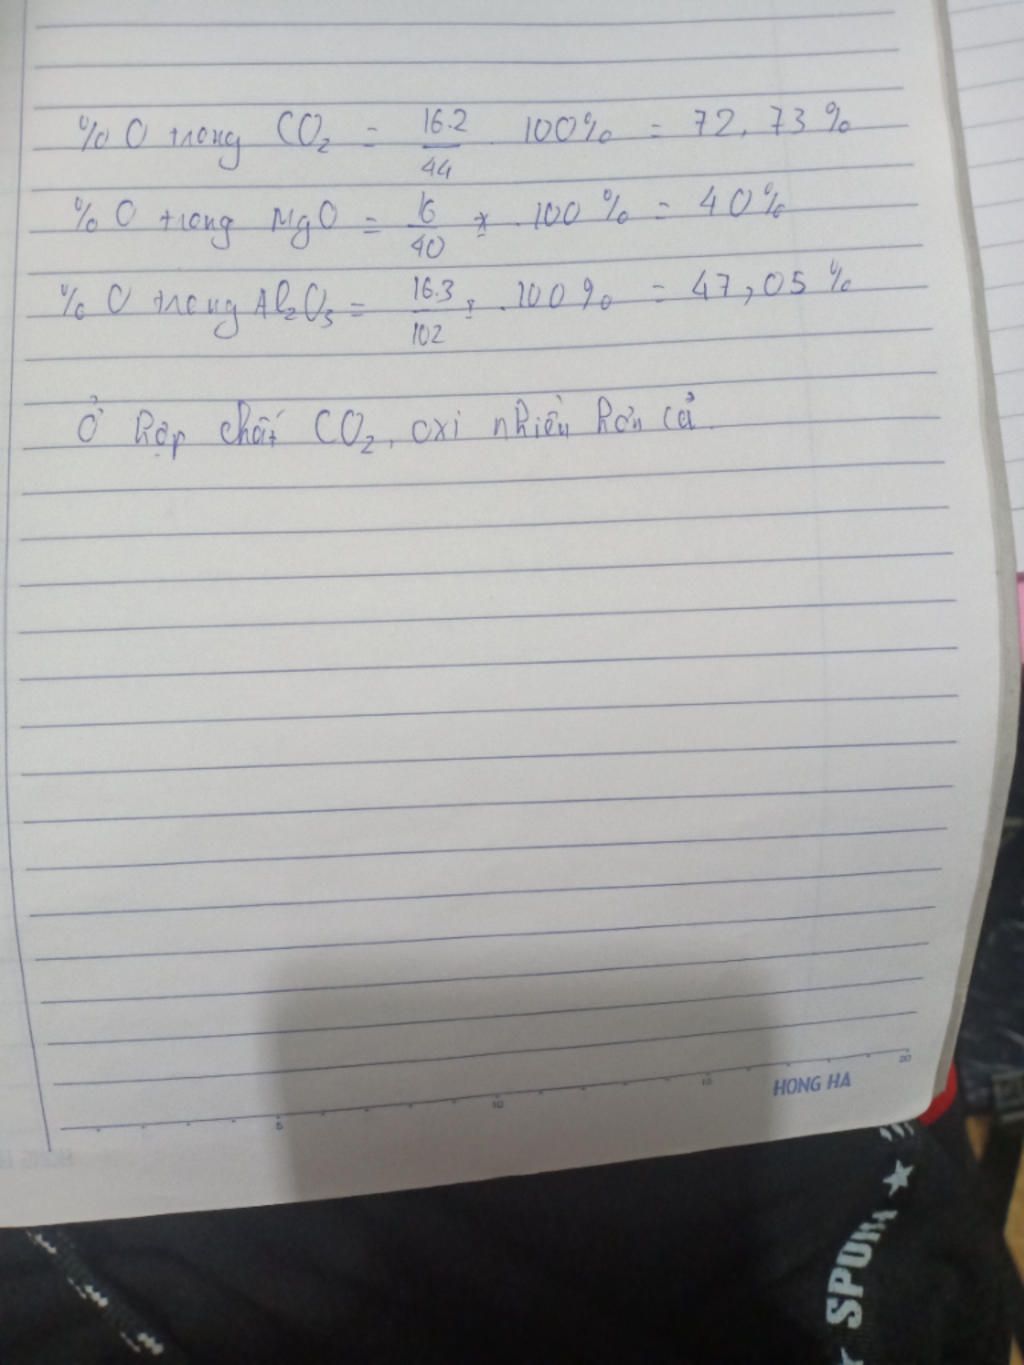 % O trong CO₂ = 16.2/44 . 100% = 72,73%
% O trong MgO = 16/40 . 100% = 40%
% O trong Al₂O₃ = 16.3/102 . 100% = 47,05%
Ở hợp chất CO₂, oxi nhiều hơn cả.
5 10 15 20
HONG HA
SPORT